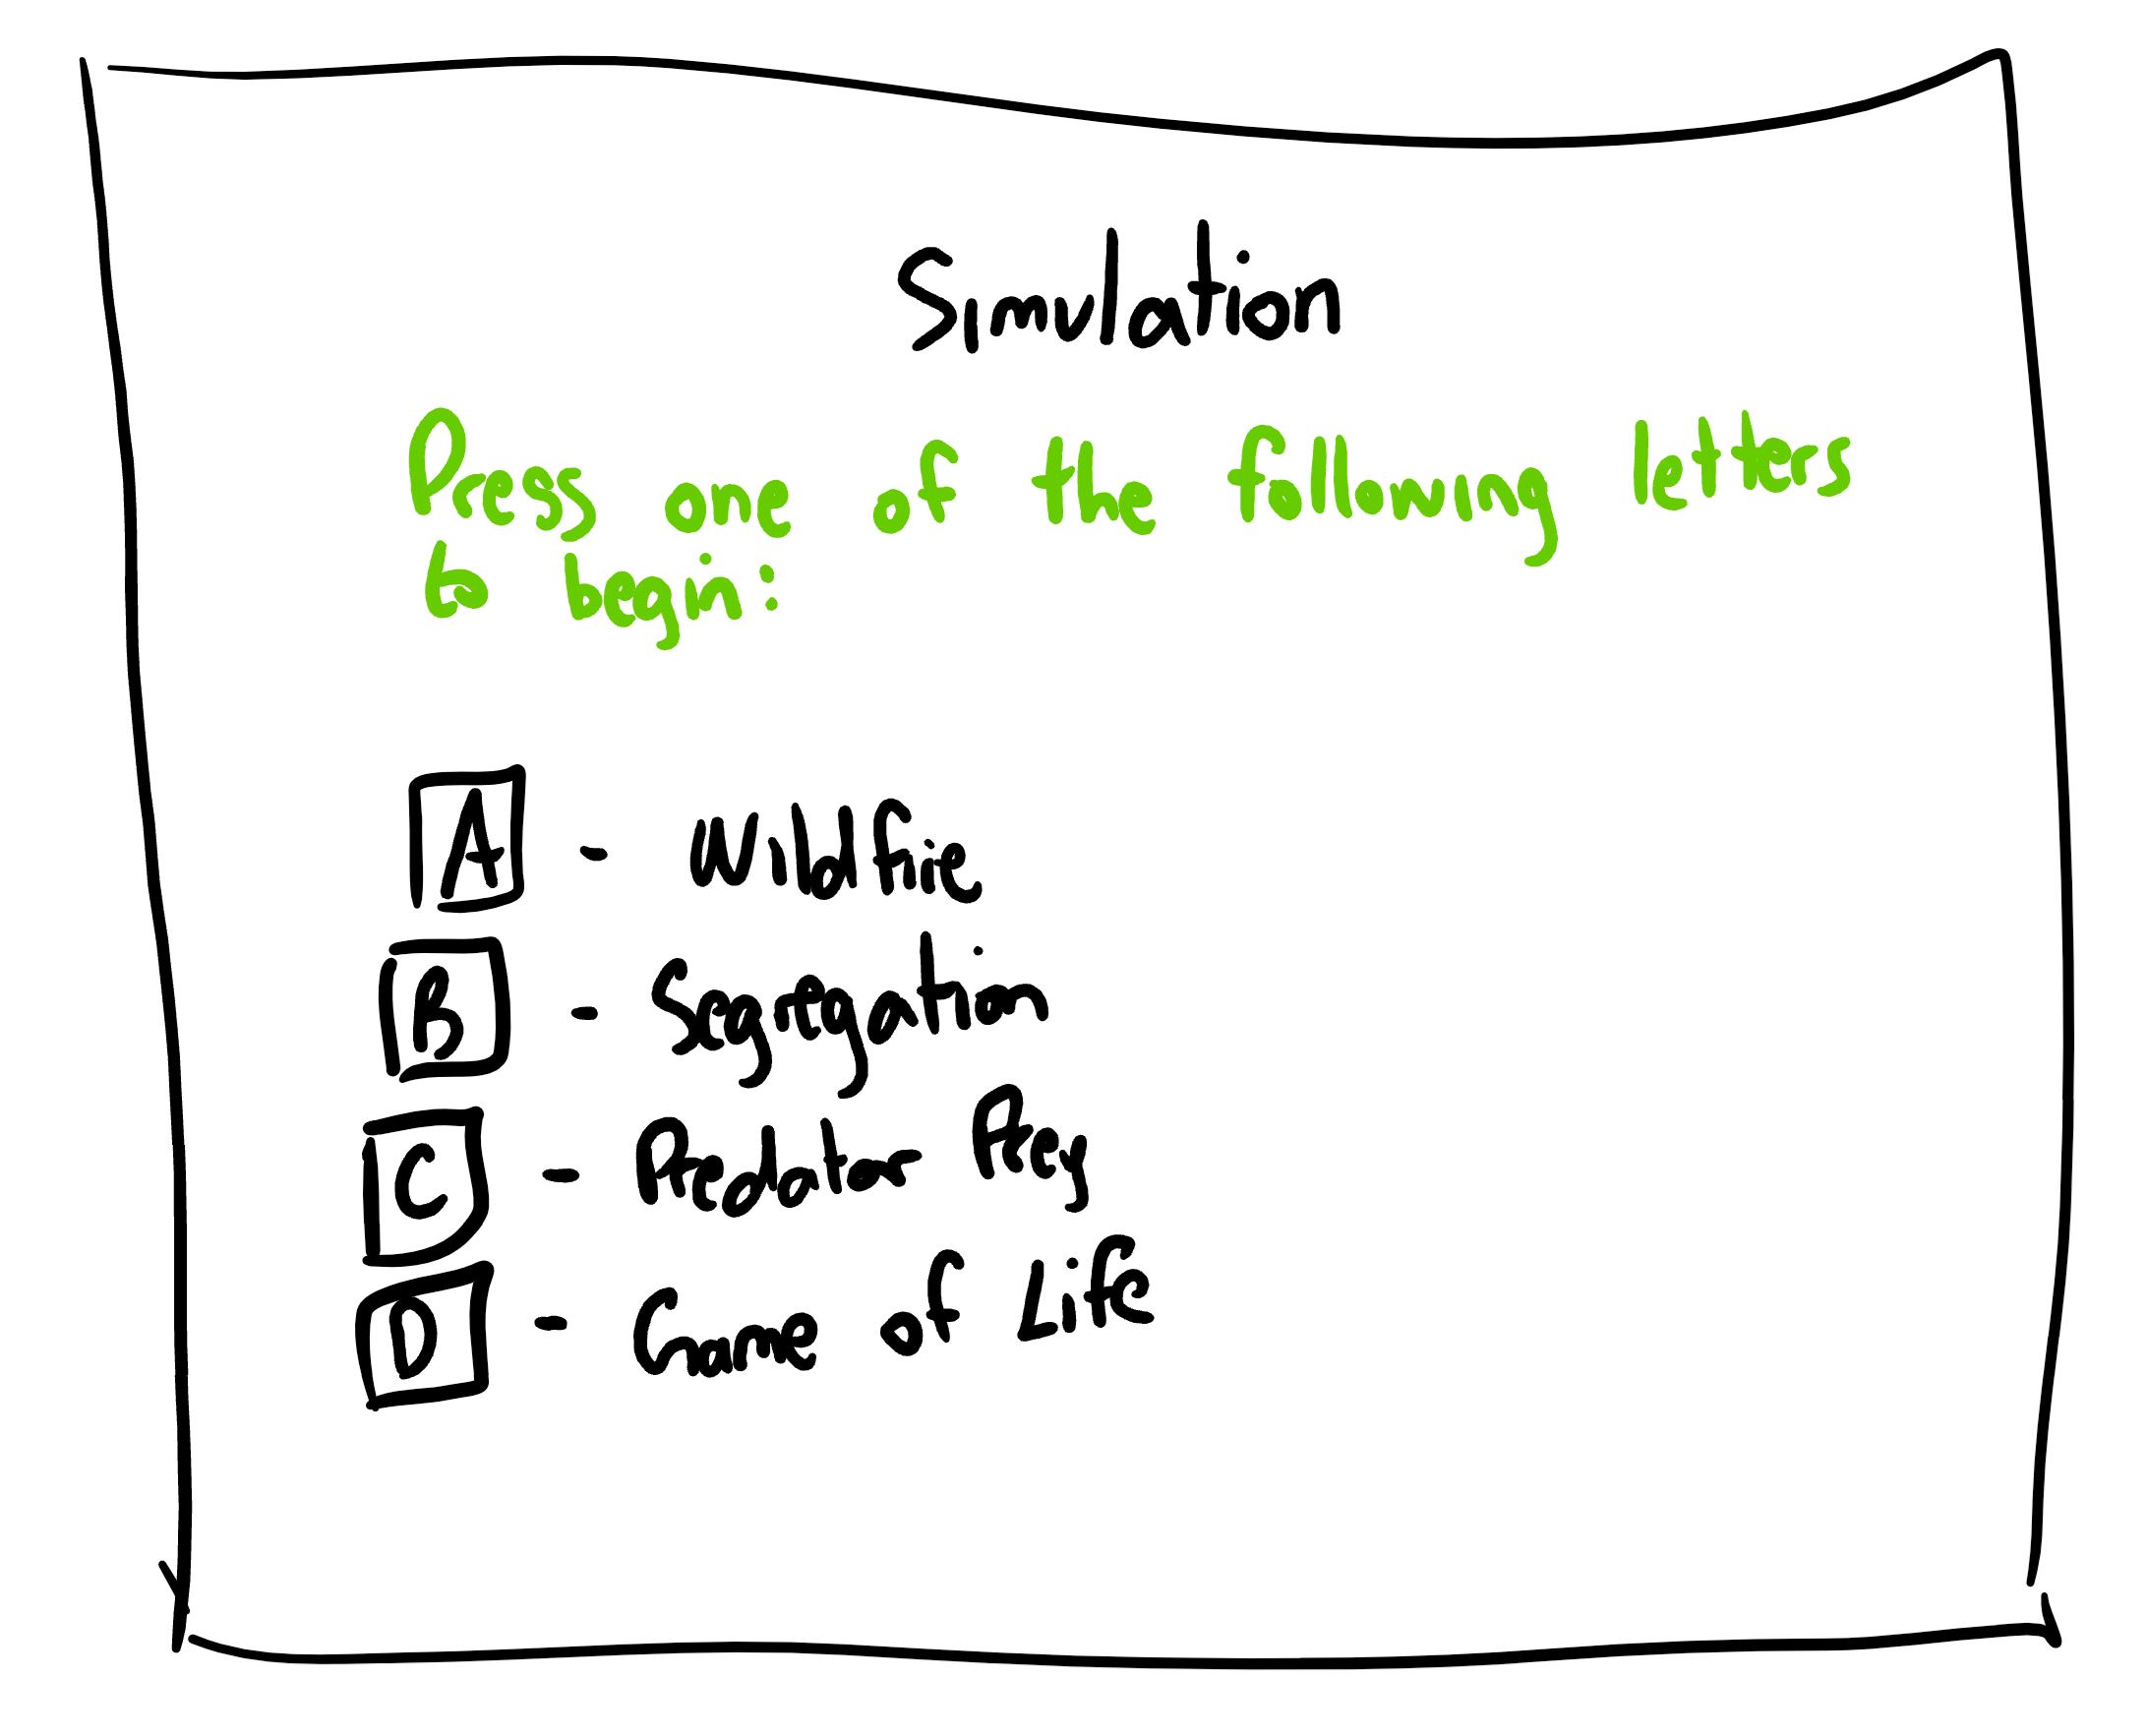 Simulation
Press one of the following letters
to begin:
A - Wildfire
B - Segregation
C - Predator Prey
D - Game of Life